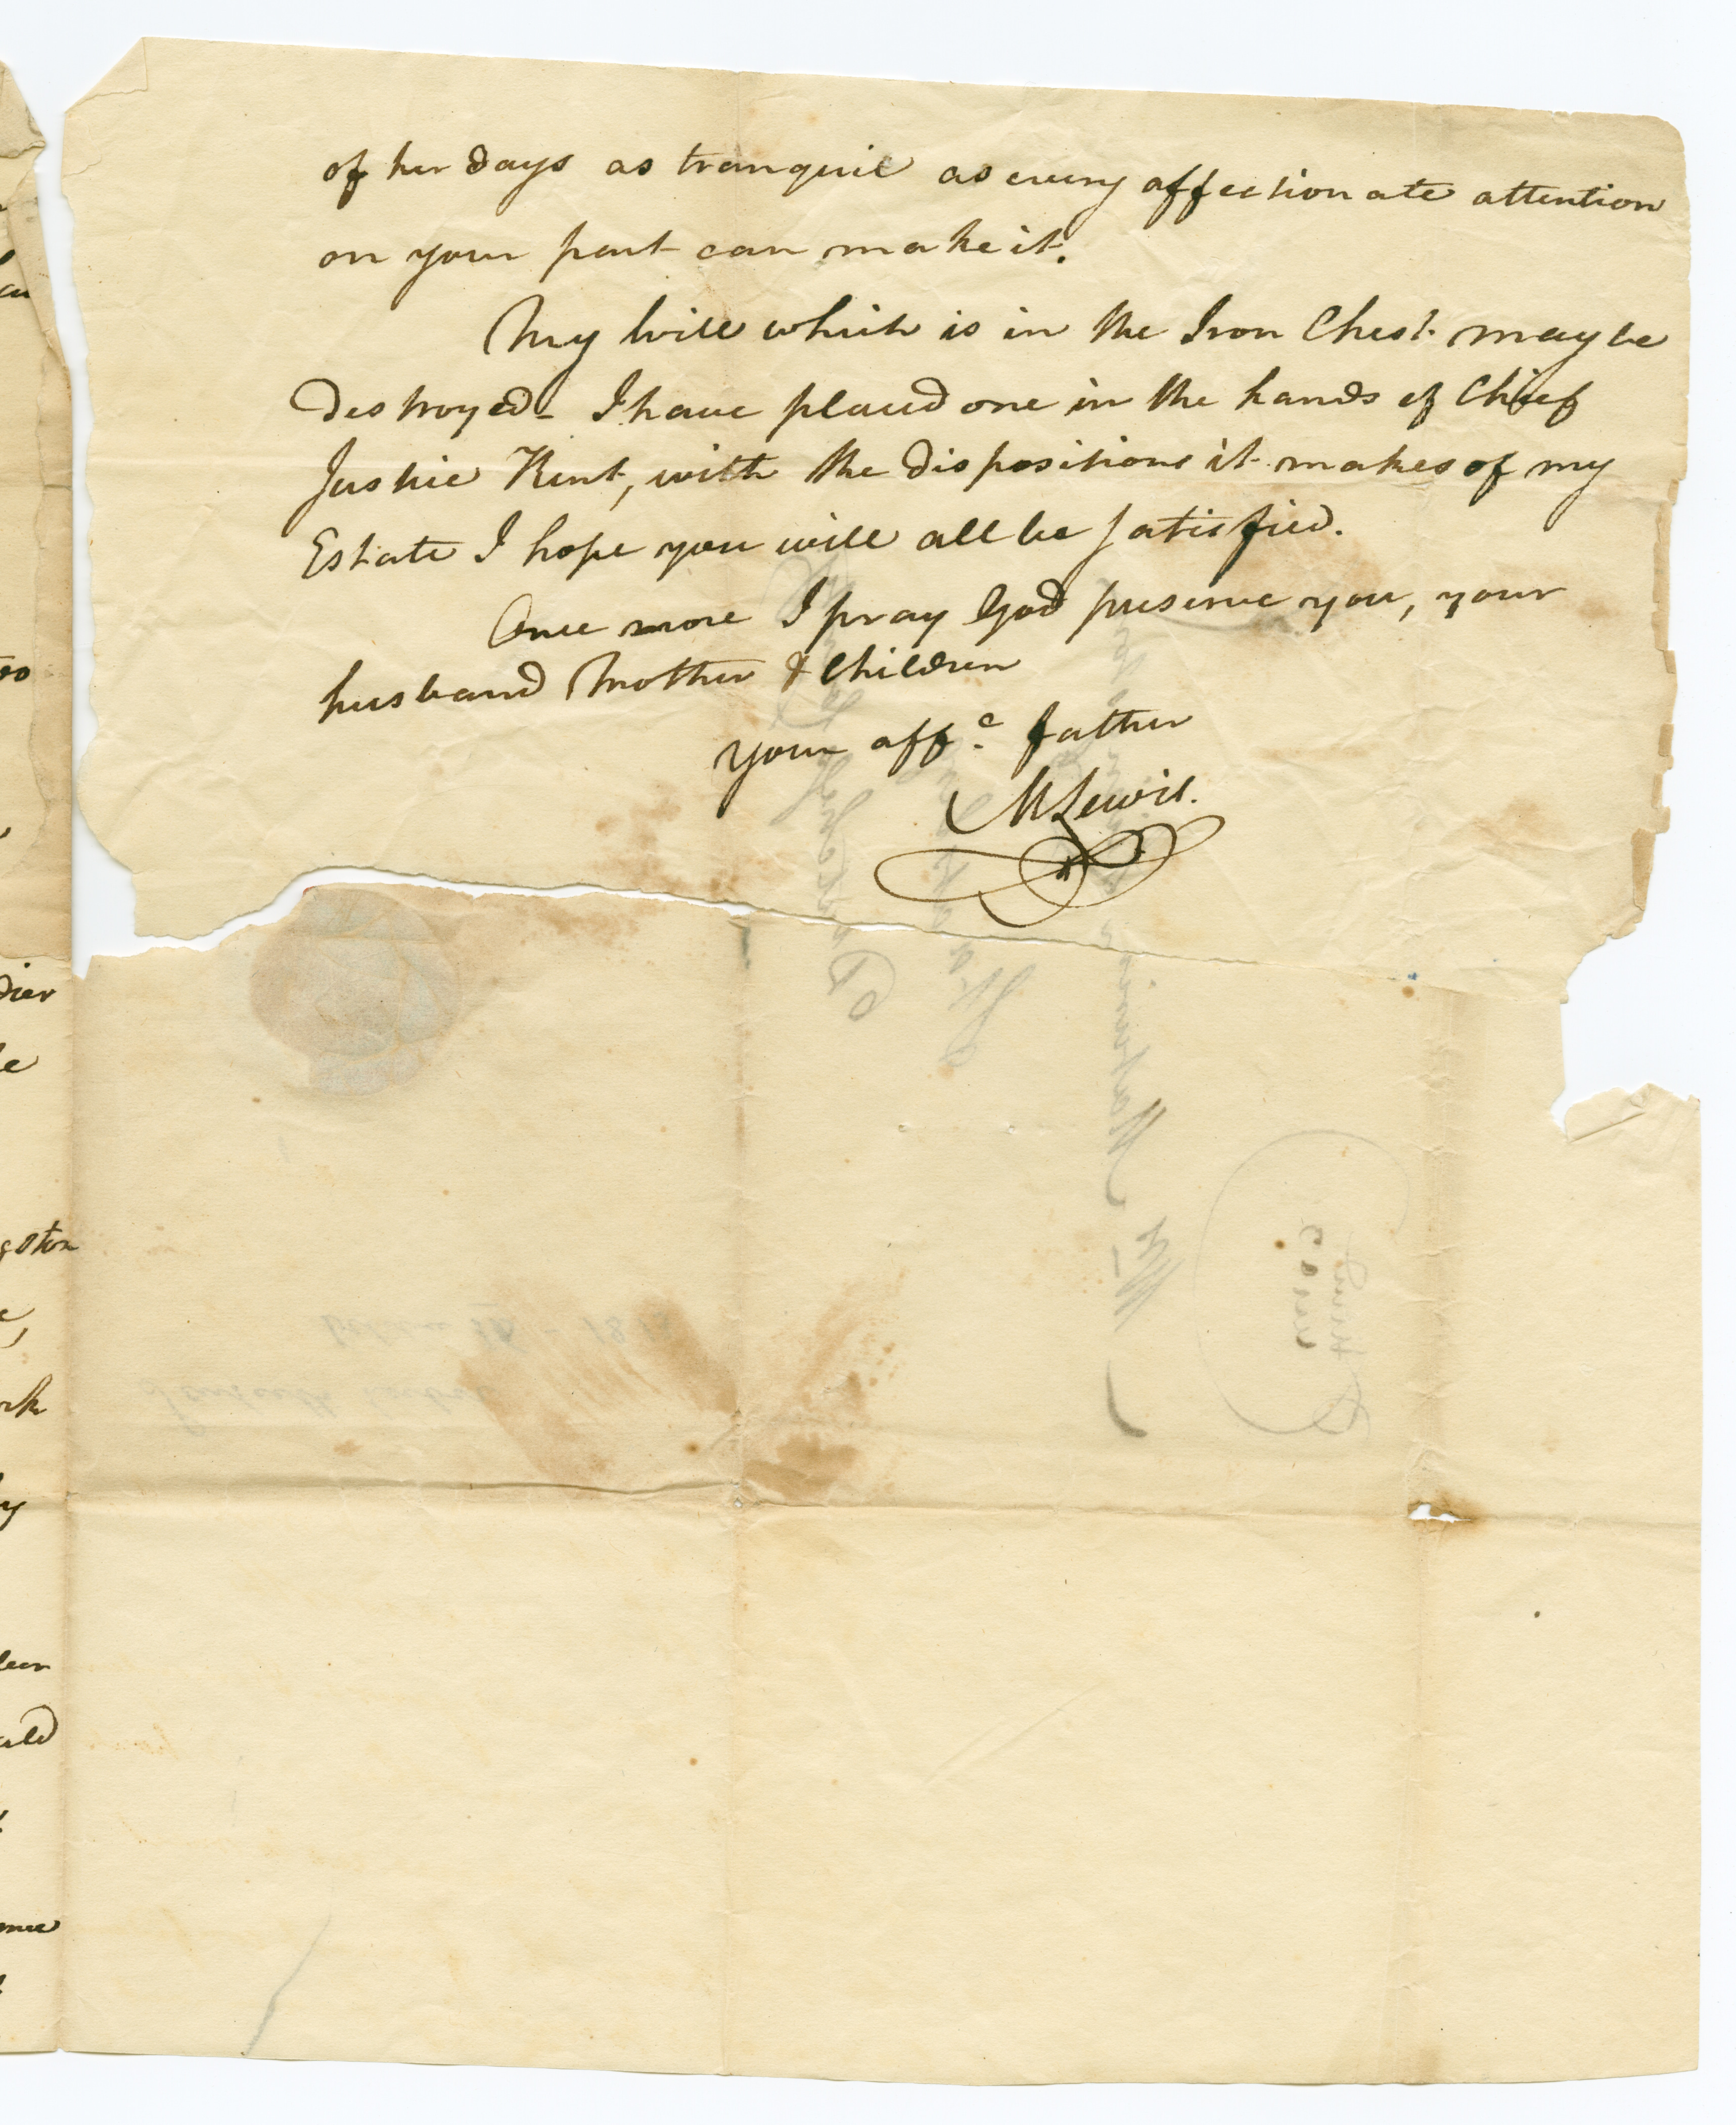 of her days as tranquil as every affectionate attention
on your part can make it.
My Will which is in the Iron Chest may be
destroyed- I have placed one in the hands of Chief
Justice Kent, with the dispositions it makes of my
Estate I hope you will all be satisfied.
Once more I pray God preserve you, your
husband Mother & Children
Your aff.e father
M Lewis.